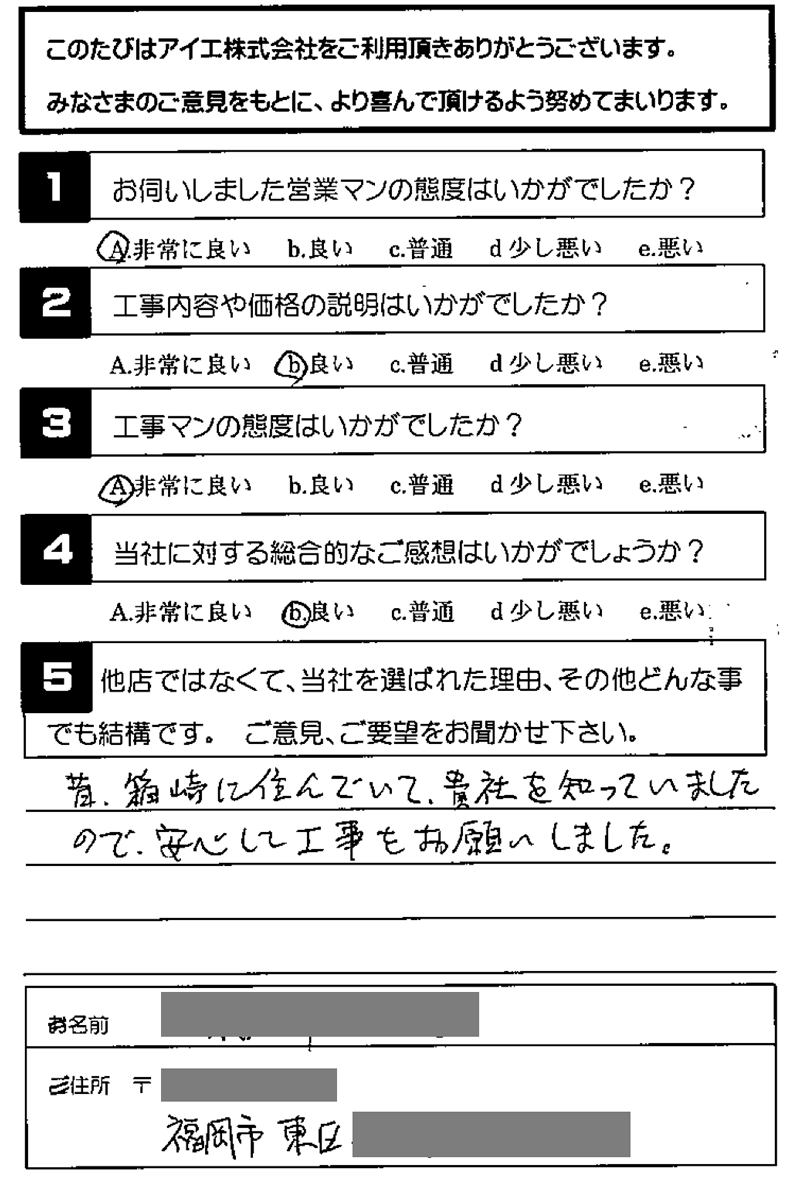 このたびはアイエ株式会社をご利用頂きありがとうございます。
みなさまのご意見をもとに、より喜んで頂けるよう努めてまいります。
1 お伺いしました営業マンの態度はいかがでしたか？
A.非常に良い b.良い c.普通 d 少し悪い e.悪い
2 工事内容や価格の説明はいかがでしたか？
A.非常に良い b良い c.普通 d 少し悪い e.悪い
3 工事マンの態度はいかがでしたか？
A非常に良い b.良い c.普通 d 少し悪い e.悪い
4 当社に対する総合的なご感想はいかがでしょうか？
A.非常に良い b.良い c.普通 d 少し悪い e.悪い
5 他店ではなくて、当社を選ばれた理由、その他どんな事
でも結構です。 ご意見、ご要望をお聞かせ下さい。
昔、箱崎に住んでいて、貴社を知っていました
ので、安心して工事をお願いしました。
お名前
ご住所 〒
福岡市 東区